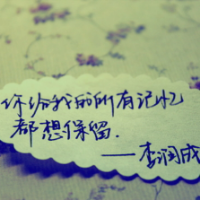 你给我的所有记忆
都想保留.
——李润成